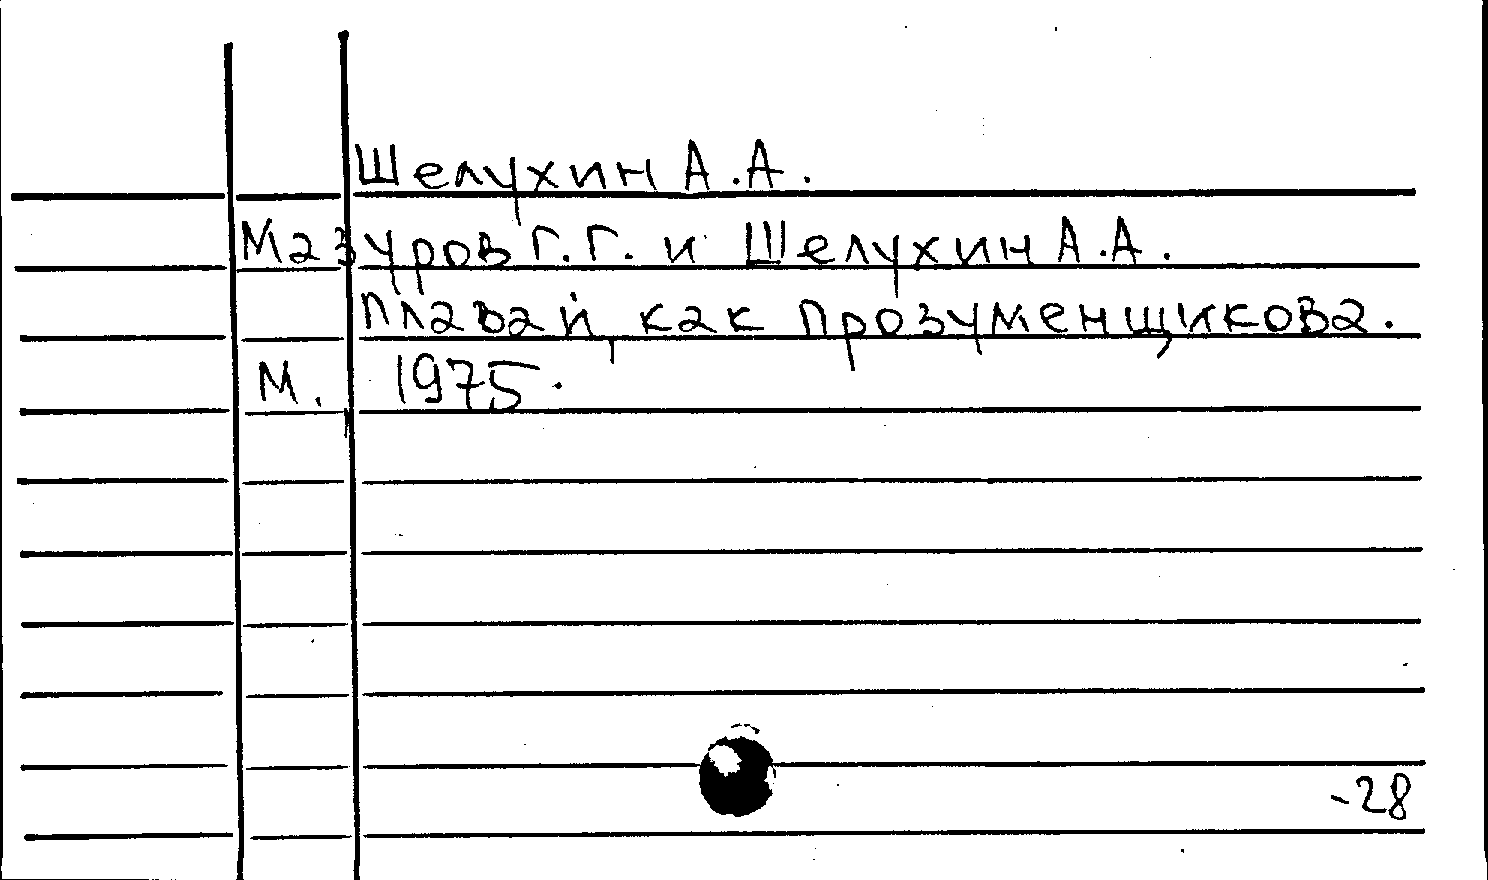 Шелухин А.А.
Мазуров Г.Г. и Шелухин А.А.
плавай, как прозуменщикова.
М. 1975.
-28